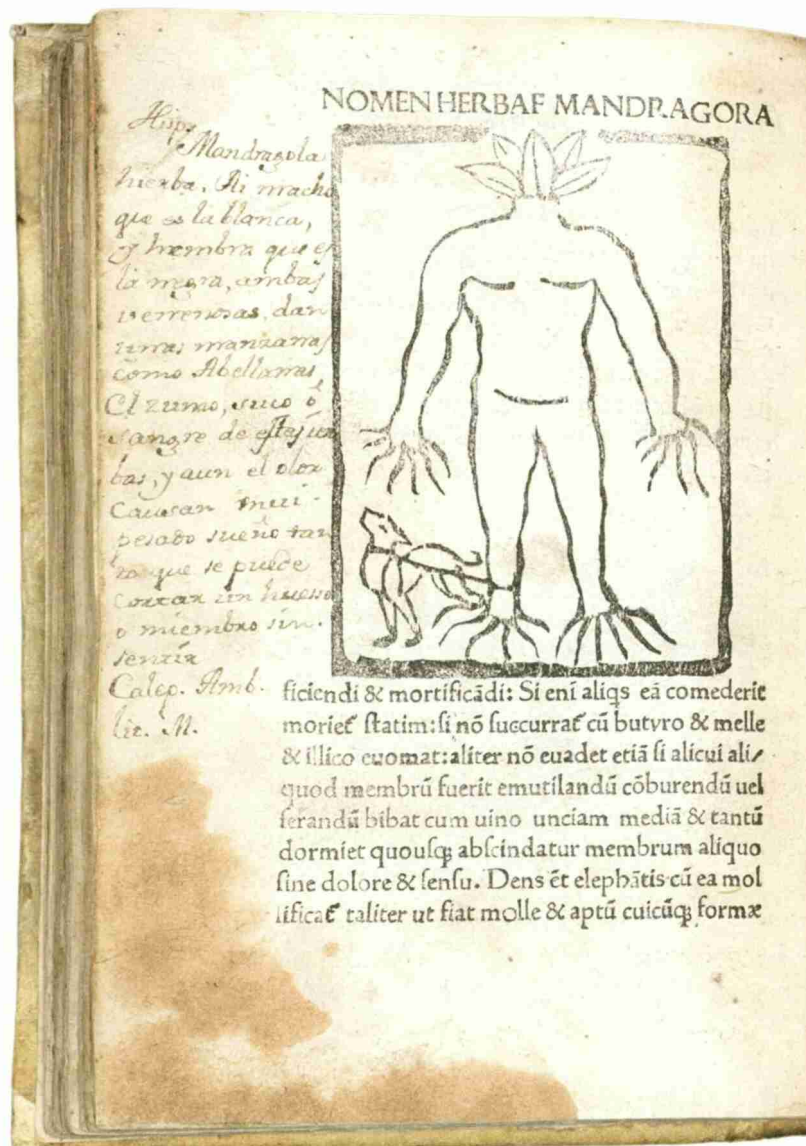 NOMEN HERBAE MANDRAGORA
Hisp.
Mandragola
hierba. Ai macho
que es la blanca,
y hembra que es
la negra, ambas
venenosas, dan
unas manzanas
como Abellanas
El zumo, suco ó
sangre de estas ier
bas, y aun el olor
Causan mui
pesado sueño tan
to que se puede
cortar un huesso
o miembro sin
sentir
Calep. Amb.
lit. M.
ficiendi & mortificādi: Si eni aliqs eā comederit
moriet᷑ ſtatim: ſi nō ſuccurrat᷑ cū butyro & melle
& illico euomat: aliter nō euadet etiā ſi alicui ali/
quod membrū fuerit emutilandū cōburendū uel
ſerandū bibat cum uino unciam mediā & tantū
dormiet quouſqꝫ abſcindatur membrum aliquo
ſine dolore & ſenſu. Dens ēt elephātis cū ea mol
lificat᷑ taliter ut fiat molle & aptū cuicūqꝫ formæ